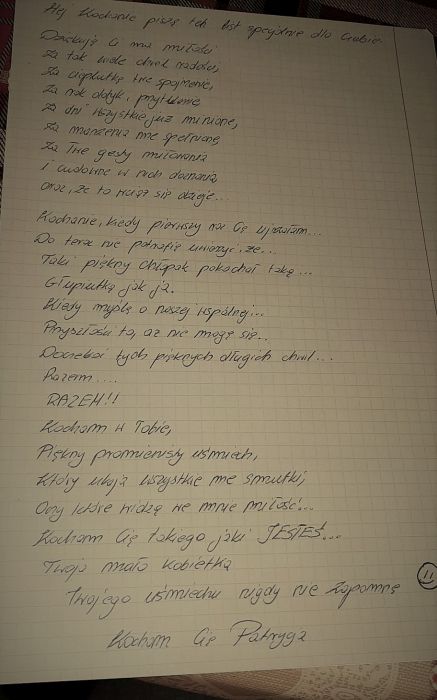 Hej Kochanie piszę ten list specjalnie dla Ciebie
Dziękuję Ci ma miłości
Za tak wiele chwil radości,
Za cieplutkie twe spojrzenie,
Za rąk dotyk, przytulenie
Za dni wszystkie już minione,
Za marzenia me spełnione
Za Twe gesty miłowania
i cudowne w nich doznania
oraz, że to wciąż się dzieje...
Kochanie, kiedy pierwszy raz Cię ujrzałam...
Do teraz nie potrafię uwierzyć, że...
Taki piękny chłopak pokochał taką...
Głupiutką jak ja.
Kiedy myślę o naszej wspólnej...
Przyszłości to, aż nie mogę się..
Doczekać tych pięknych długich chwil...
Razem....
RAZEM!!
Kocham w Tobie,
Piękny promienisty uśmiech,
Który ukoja wszystkie me smutki,
Oczy które widzą we mnie miłość...
Kocham Cię takiego jaki JESTEŚ...
Twoja mała kobietka
Twojego uśmiechu nigdy nie zapomnę
Kocham Cię Patryga
11